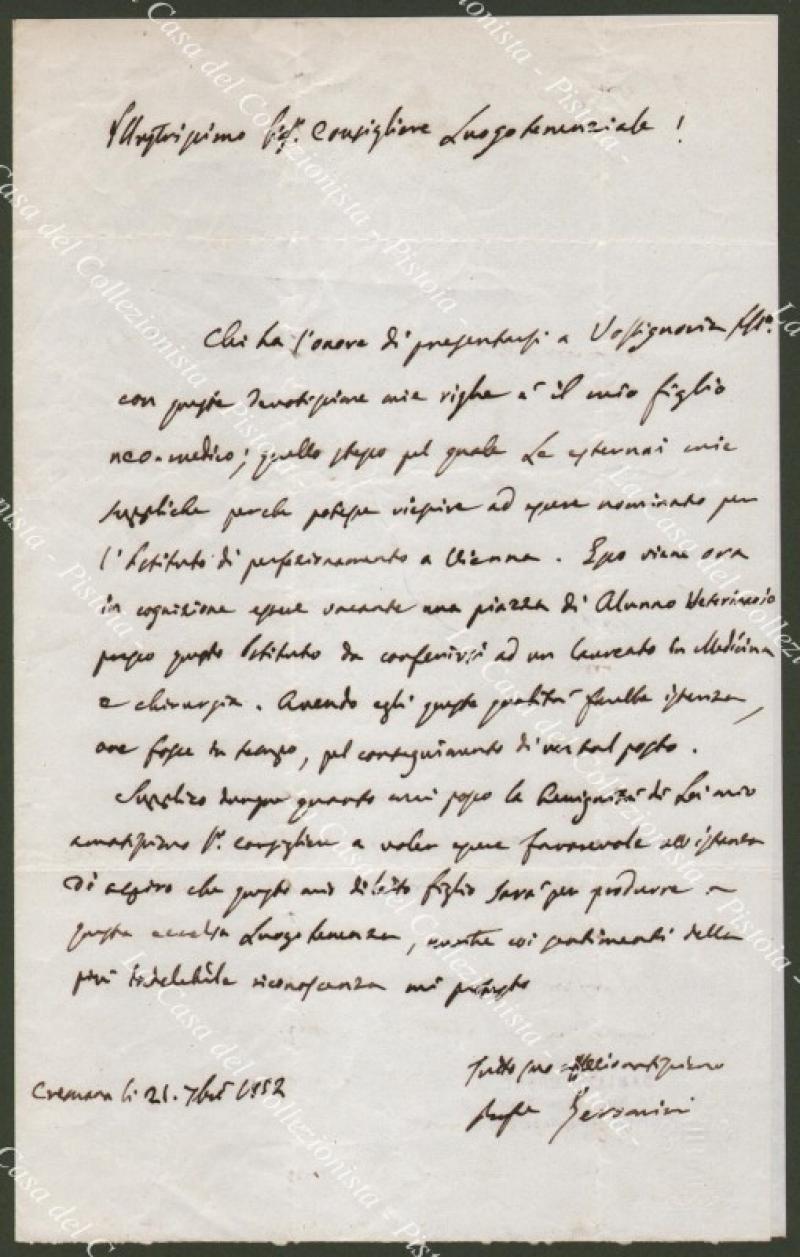 Illustrissimo Sigr. Consigliere Luogotenenziale !
Chi ha l'onore di presentarsi a Vossignoria Ill.a
con queste devotissime mie righe è il mio figlio
neo-medico; quello stesso pel quale Le esternai mie
suppliche perche potesse riescire ad essere nominato per
l'Istituto di perfezionamento a Vienna. Esso viene ora
in cognizione essere vacante una piazza di Alunno Veterinario
presso questo Istituto da conferirsi ad un laureato in Medicina
e chirurgia. Avendo egli queste qualità farebbe istanza,
ove fosse in tempo, pel conseguimento di un tal posto.
Supplico dunque quanto mai posso la benignità di Lei mio
amatissimo Sr. consigliere a voler essere favorevole all'istanza
di aspiro che questo mio diletto figlio sarà per produrre a
questa eccelsa Luogotenenza, mentre coi sentimenti della
più indelebile riconoscenza mi protesto
Tutto suo
Cremona li 21. 7bre 1852
La Casa del Collezionista - Pistoia -